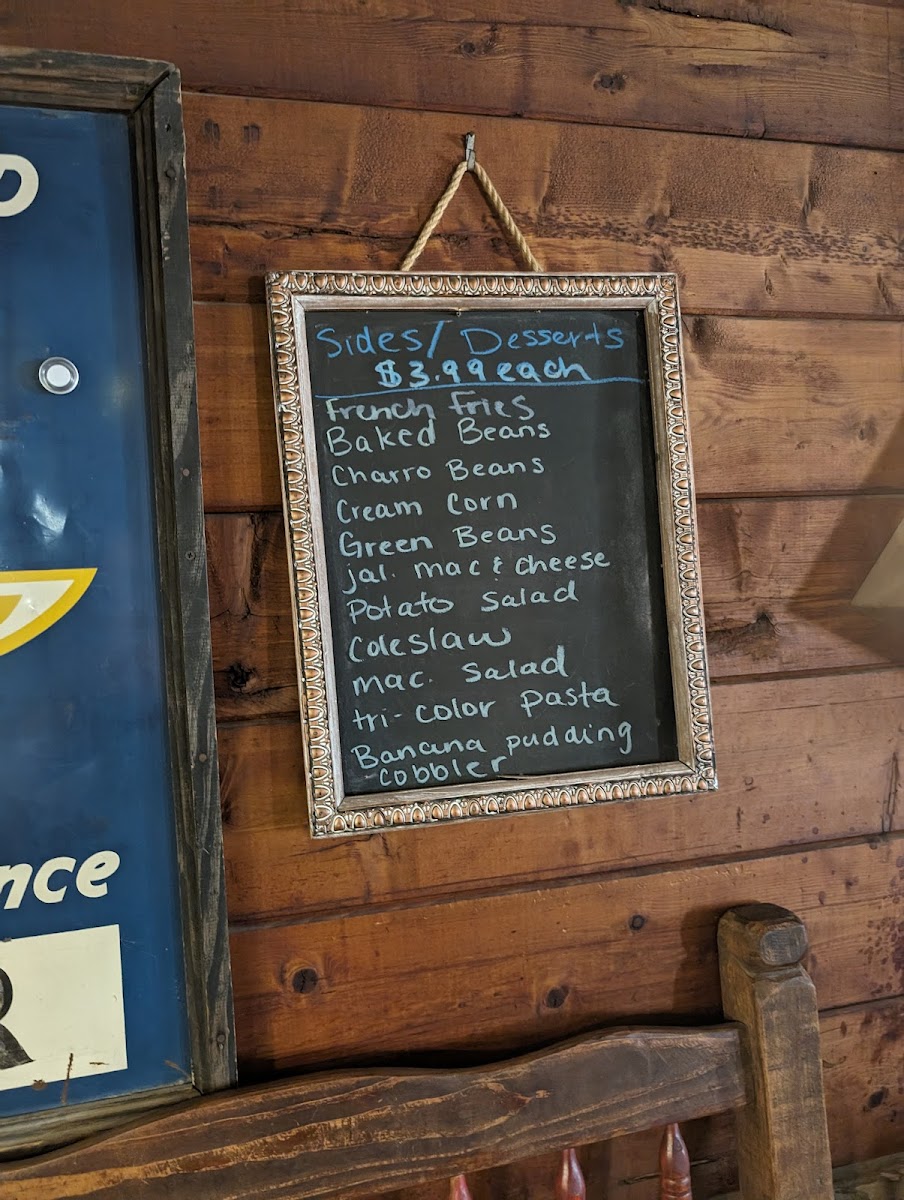 Sides/ Desserts
$3.99 each
French Fries
Baked Beans
Charro Beans
Cream Corn
Green Beans
jal. mac & cheese
Potato Salad
Coleslaw
mac. Salad
tri-color Pasta
Banana pudding
cobbler
nce